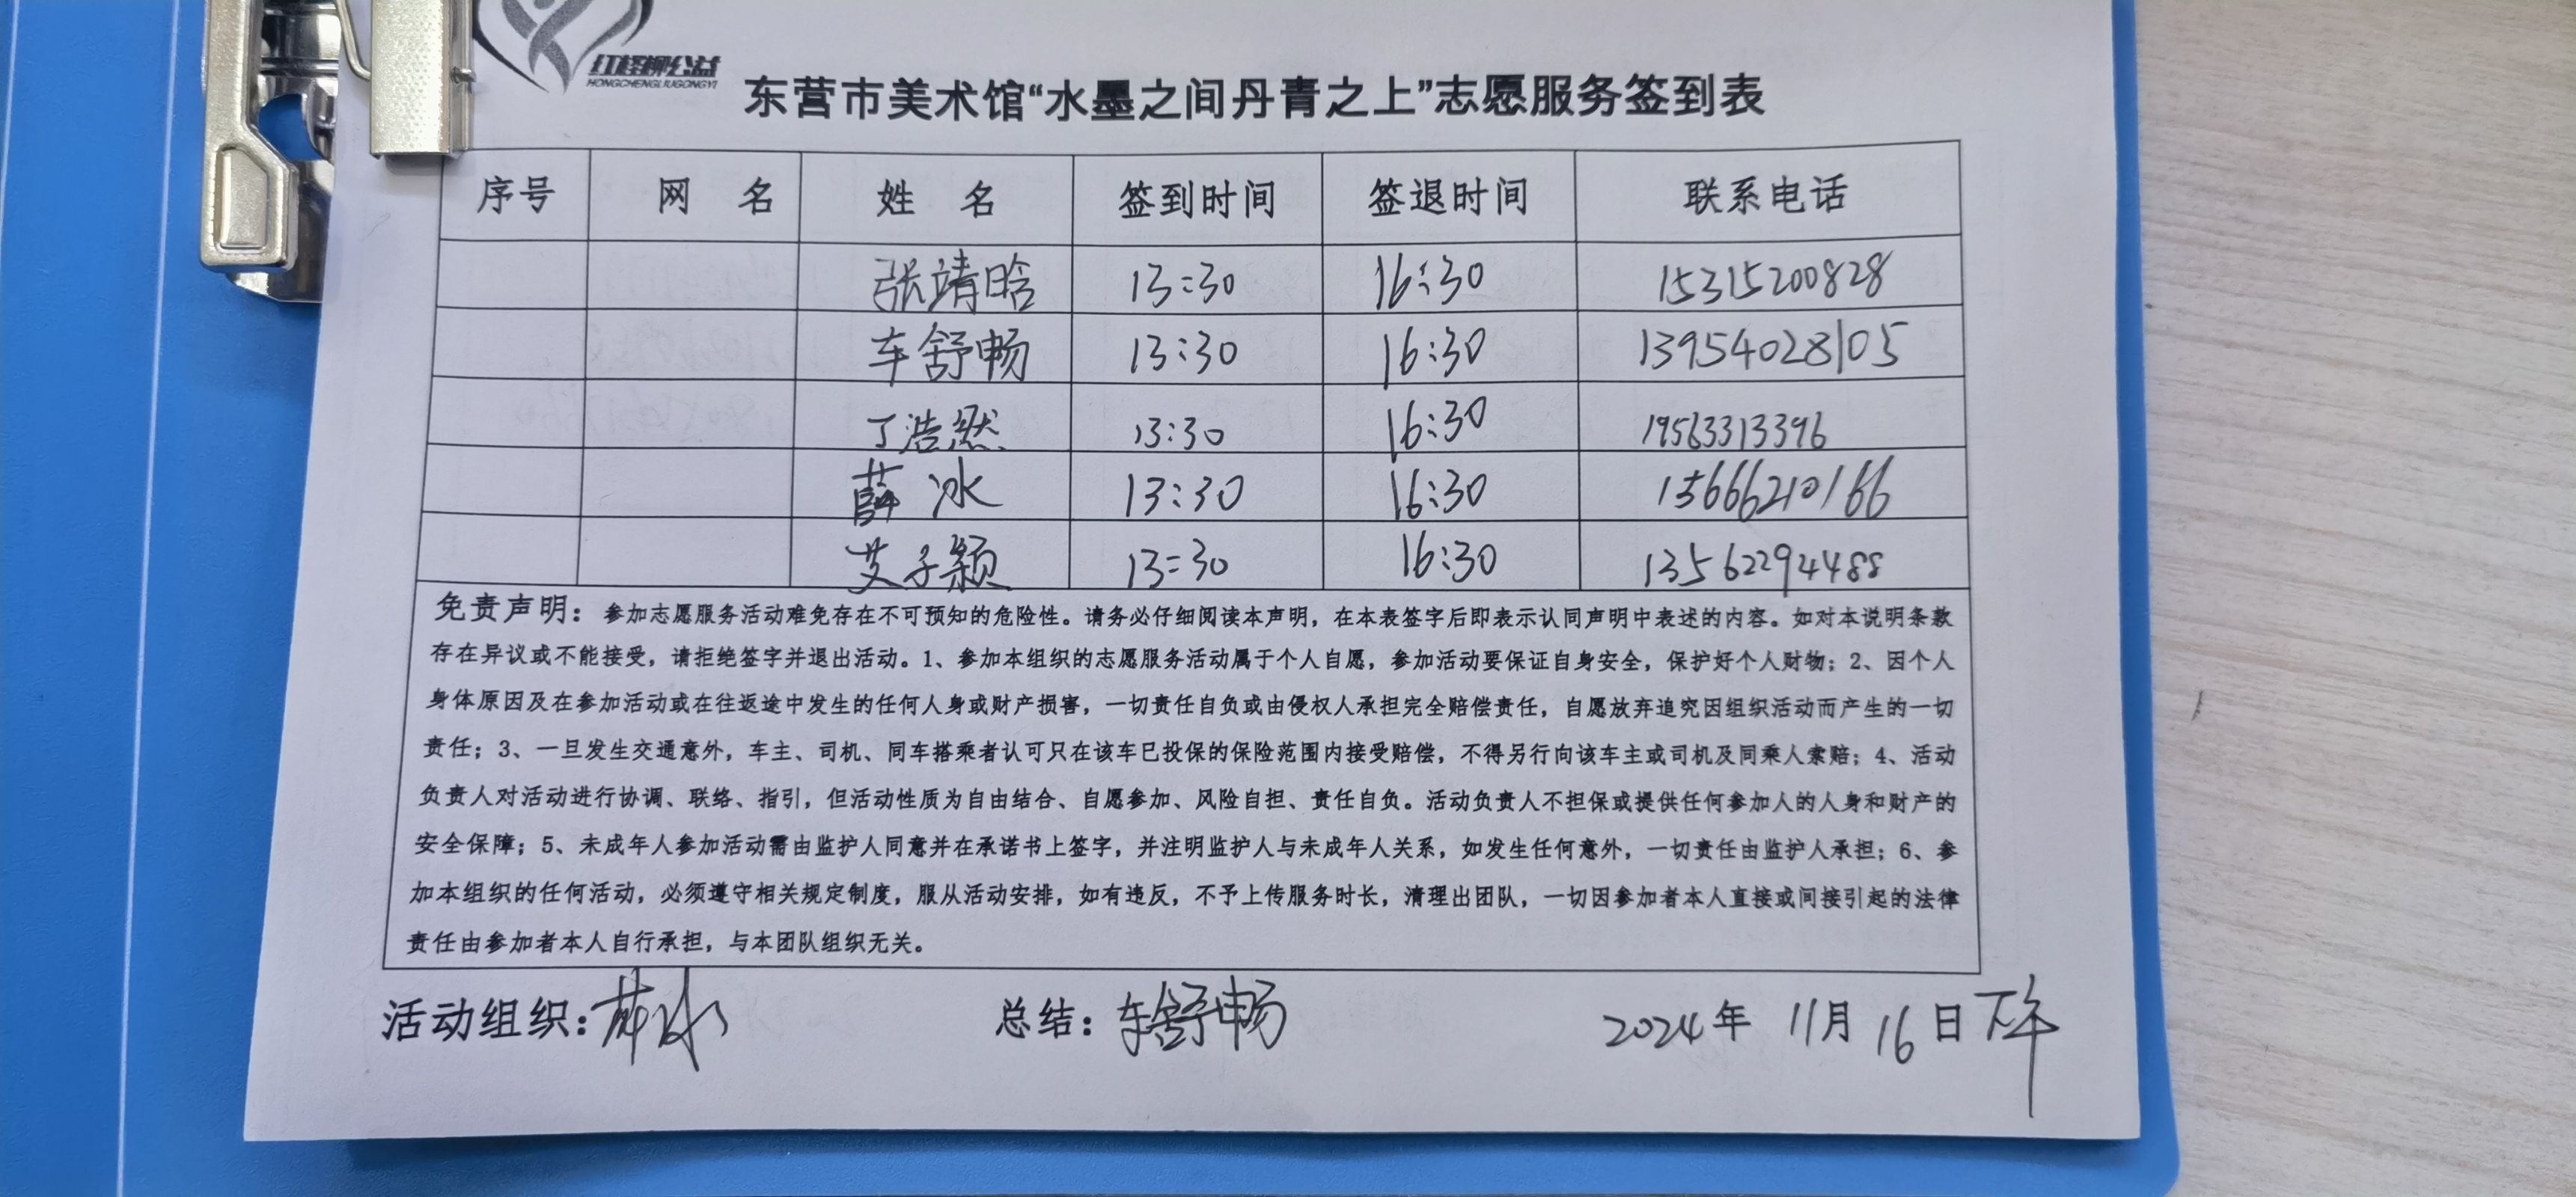 红柽柳公益
HONGCHENGLIUGONGYI
东营市美术馆“水墨之间丹青之上”志愿服务签到表
序号 网 名 姓 名 签到时间 签退时间 联系电话
张靖晗 13:30 16:30 15315200828
车舒畅 13:30 16:30 13954028105
丁浩然 13:30 16:30 19563313396
薛冰 13:30 16:30 15666210166
艾子颖 13:30 16:30 13562294488
免责声明：参加志愿服务活动难免存在不可预知的危险性。请务必仔细阅读本声明，在本表签字后即表示认同声明中表述的内容。如对本说明条款
存在异议或不能接受，请拒绝签字并退出活动。1、参加本组织的志愿服务活动属于个人自愿，参加活动要保证自身安全，保护好个人财物；2、因个人
身体原因及在参加活动或在往返途中发生的任何人身或财产损害，一切责任自负或由侵权人承担完全赔偿责任，自愿放弃追究因组织活动而产生的一切
责任；3、一旦发生交通意外，车主、司机、同车搭乘者认可只在该车已投保的保险范围内接受赔偿，不得另行向该车主或司机及同乘人索赔；4、活动
负责人对活动进行协调、联络、指引，但活动性质为自由结合、自愿参加、风险自担、责任自负。活动负责人不担保或提供任何参加人的人身和财产的
安全保障；5、未成年人参加活动需由监护人同意并在承诺书上签字，并注明监护人与未成年人关系，如发生任何意外，一切责任由监护人承担；6、参
加本组织的任何活动，必须遵守相关规定制度，服从活动安排，如有违反，不予上传服务时长，清理出团队，一切因参加者本人直接或间接引起的法律
责任由参加者本人自行承担，与本团队组织无关。
活动组织：薛冰 总结：车舒畅 2024年 11月 16日下午